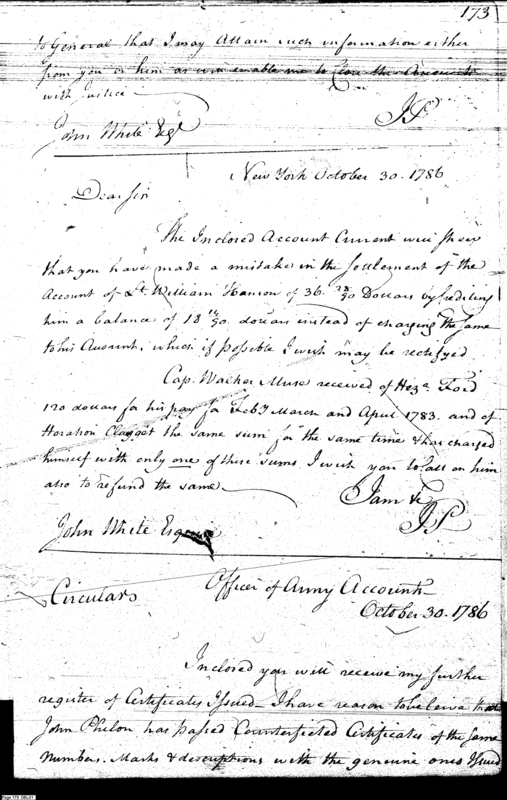 173
to General that I may Attain such information either
from you or him as will enable me to Close the Accounts
with Justice
JP
John White Esqr
New York October 30. 1786
Dear Sir
The Inclosed Account Current will shew
that you have made a mistake in the Settlement of the
Account of Lt William Hanson of 36. 28/90 Dollars by Crediting
him a balance of 18 14/90. dollars instead of charging the same
to his Account, which if possible I wish may be rectifyed
Cap. Walker Muse received of Heza Ford
120 dollars for his pay for Feby March and April 1783. and of
Horation Clagget the same sum for the same time & has charged
himself with only one of these sums I wish you to Call on him
also to refund the same
I am &c
JP
John White Esquire
Circulars
Officer of Army Accounts
October 30. 1786
Inclosed you will receive my further
register of Certificates Issued I have reason to beleive that
John Phelon has passed Counterfeited Certificates of the same
Numbers. Marks & descriptions with the genuine ones Issued